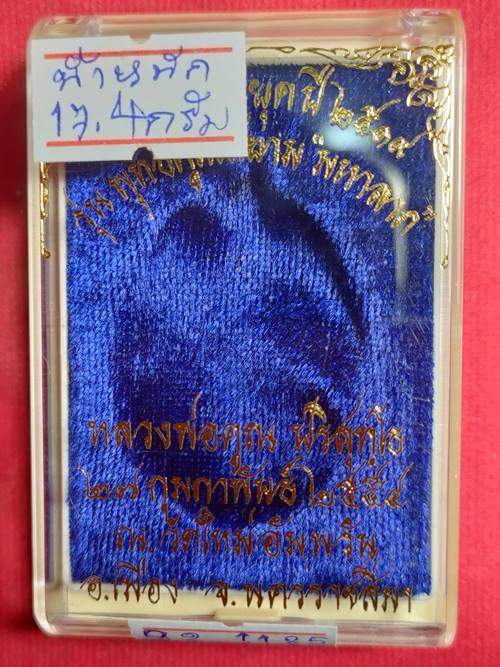 น้ำหนัก
17.4 กรัม
ยุคปี ๒๕๑๙
รุ่น
หลวงพ่อคูณ ปริสุทฺโธ
๒๗ กุมภาพันธ์ ๒๕๕๔
ณ. วัดใหม่อัมพวัน
อ.เมือง จ.นครราชสีมา
1125